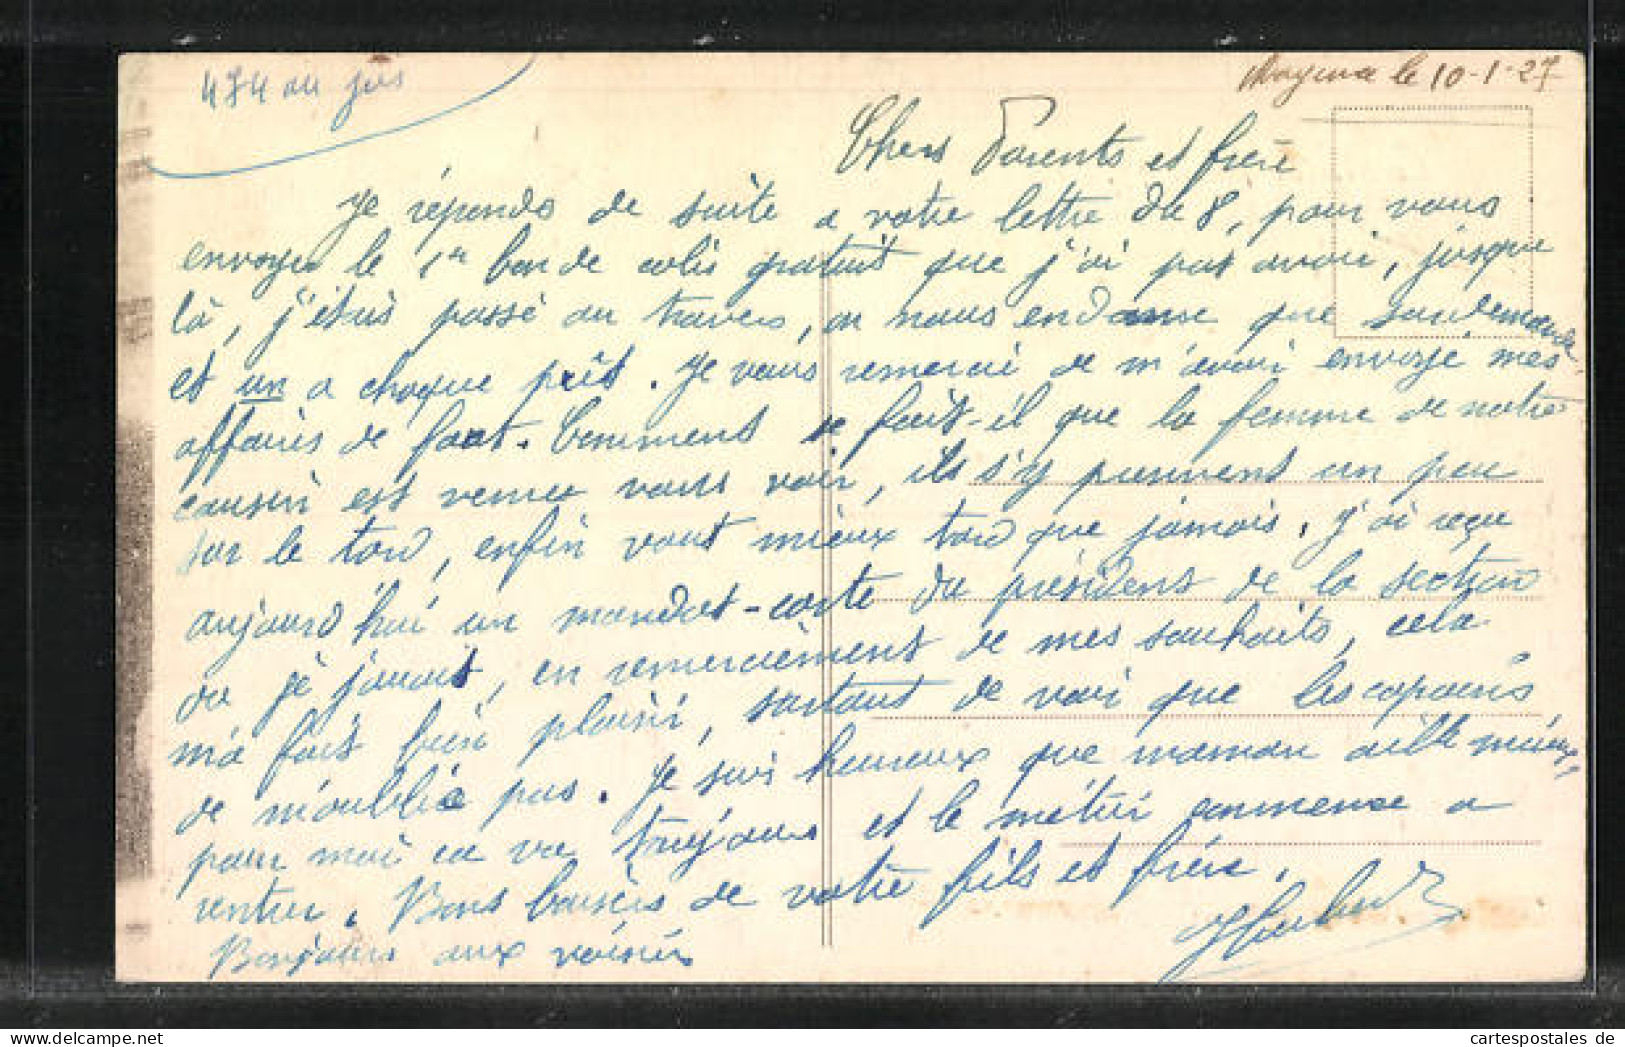 474 au jus
Mayence le 10-1-27
Chers Parents et frère
Je réponds de suite a votre lettre du 8, pour vous
envoyer le 1er bon de colis gratuit que j'ai pas avoir, jusque
là, j'étais passé au travers, on nous en donne que
et un a chaque prêt. Je vous remercie de m'avoir envoyé mes
affaires de foot. Comment se fait-il que la femme de notre
cousin est venue vous voir, ils s'y prennent un peu
sur le tard, enfin vaut mieux tard que jamais. J'ai reçu
aujourd'hui un mandat-carte du président de la section
ou je jouais, en remerciement de mes souhaits, cela
m'a fait bien plaisir, surtant de voir que les copains
de m'oublie pas. Je suis heureux que maman aille mieux,
pour moi ca va toujours et le métier commence a
rentrer. Bons baisers de votre fils et frère.
Bonjours aux voisins
cartespostales de